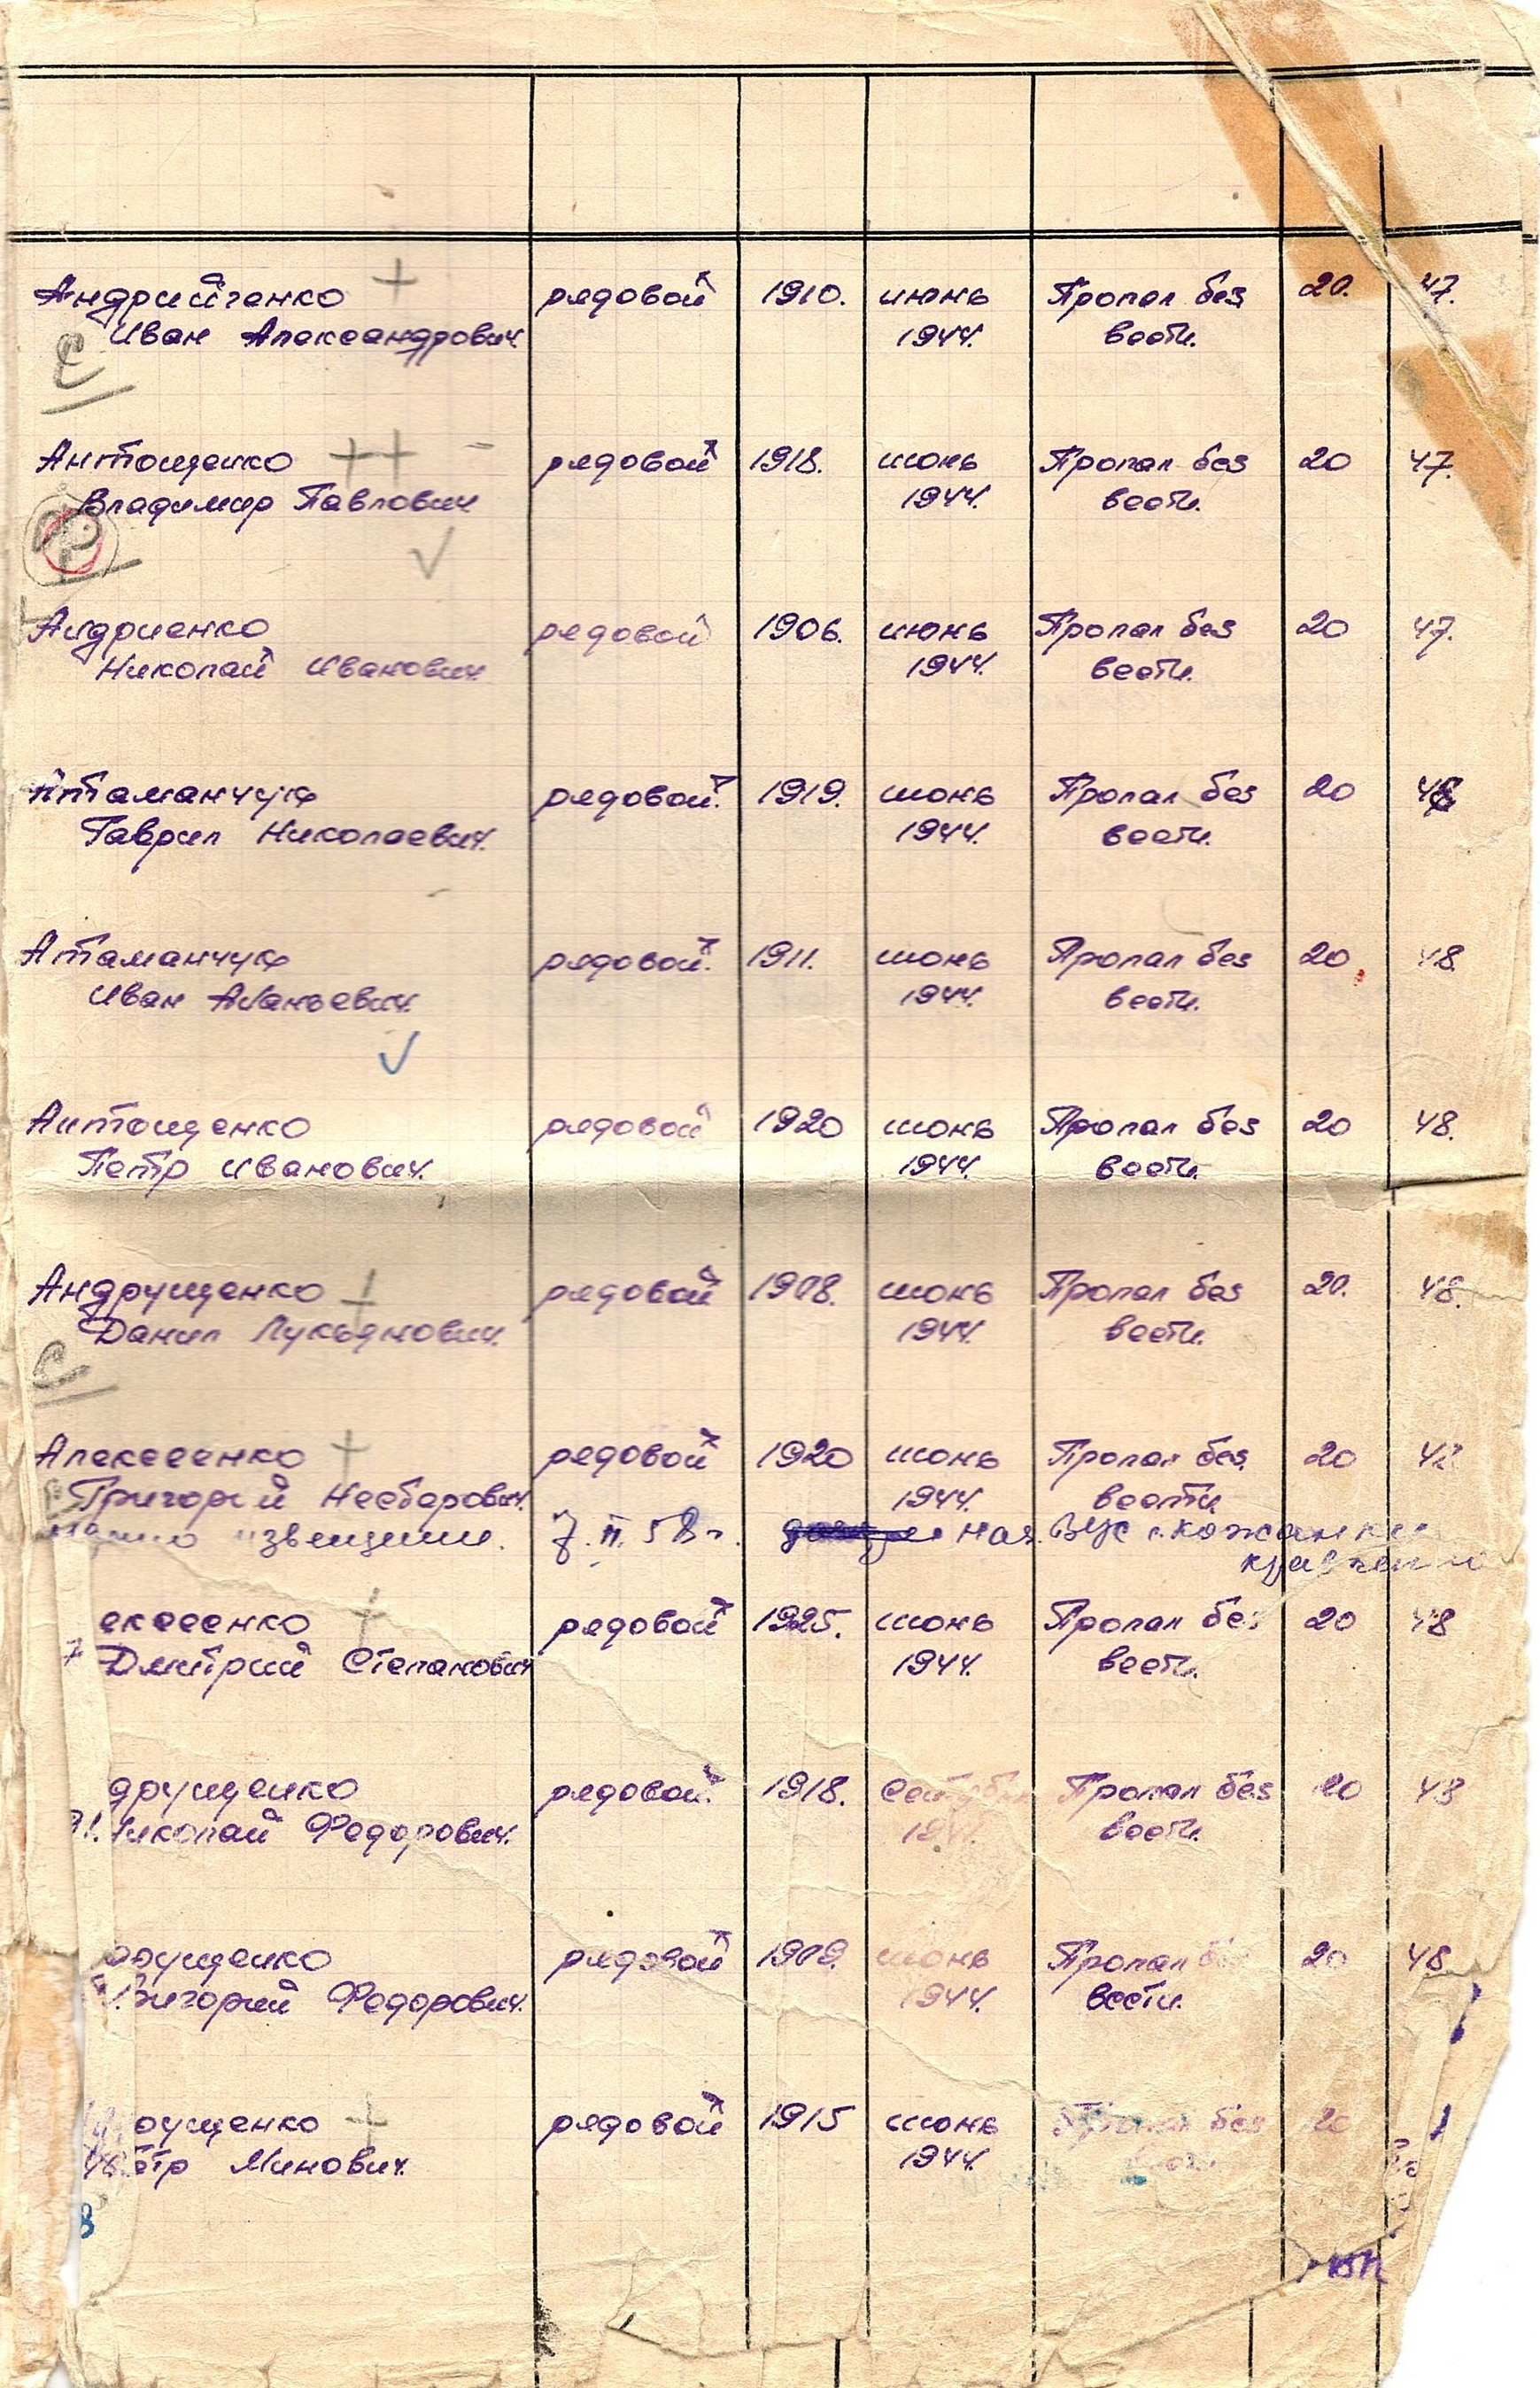 Андрийченко рядовой 1910. июнь Пропал без 20. 47.
Иван Александрович 1944. вести.
С
Антощенко рядовой 1918. июнь Пропал без 20 47.
Владимир Павлович 1944. вести.
Андриенко рядовой 1906. июнь Пропал без 20 47.
Николай Иванович 1944. вести.
Атаманчук рядовой. 1919. июнь Пропал без 20
Гаврил Николаевич. 1944. вести.
Атаманчук рядовой. 1911. июнь Пропал без 20 48.
Иван Ананьевич. 1944. вести.
Антощенко рядовой 1920 июнь Пропал без 20 48.
Петр Иванович. 1944. вести.
Андрущенко рядовой 1908. июнь Пропал без 20. 48.
Данил Лукьянович. 1944. вести.
С
Алексеенко рядовой 1920 июнь Пропал без 20
Григорий 1944. вести
извещение. 7.II.58г. нач. ВУС
ексеенко рядовой 1925. июнь Пропал без 20 48
Дмитрий Степанович 1944. вести.
друщенко рядовой. 1918. Пропал без 20 48
Николай Федорович. вести.
рущенко рядовой 1909. июнь Пропал 20 48
Григорий Федорович. 1944. вести.
рущенко рядовой 1915 июнь без 20
етр Минович. 1944.